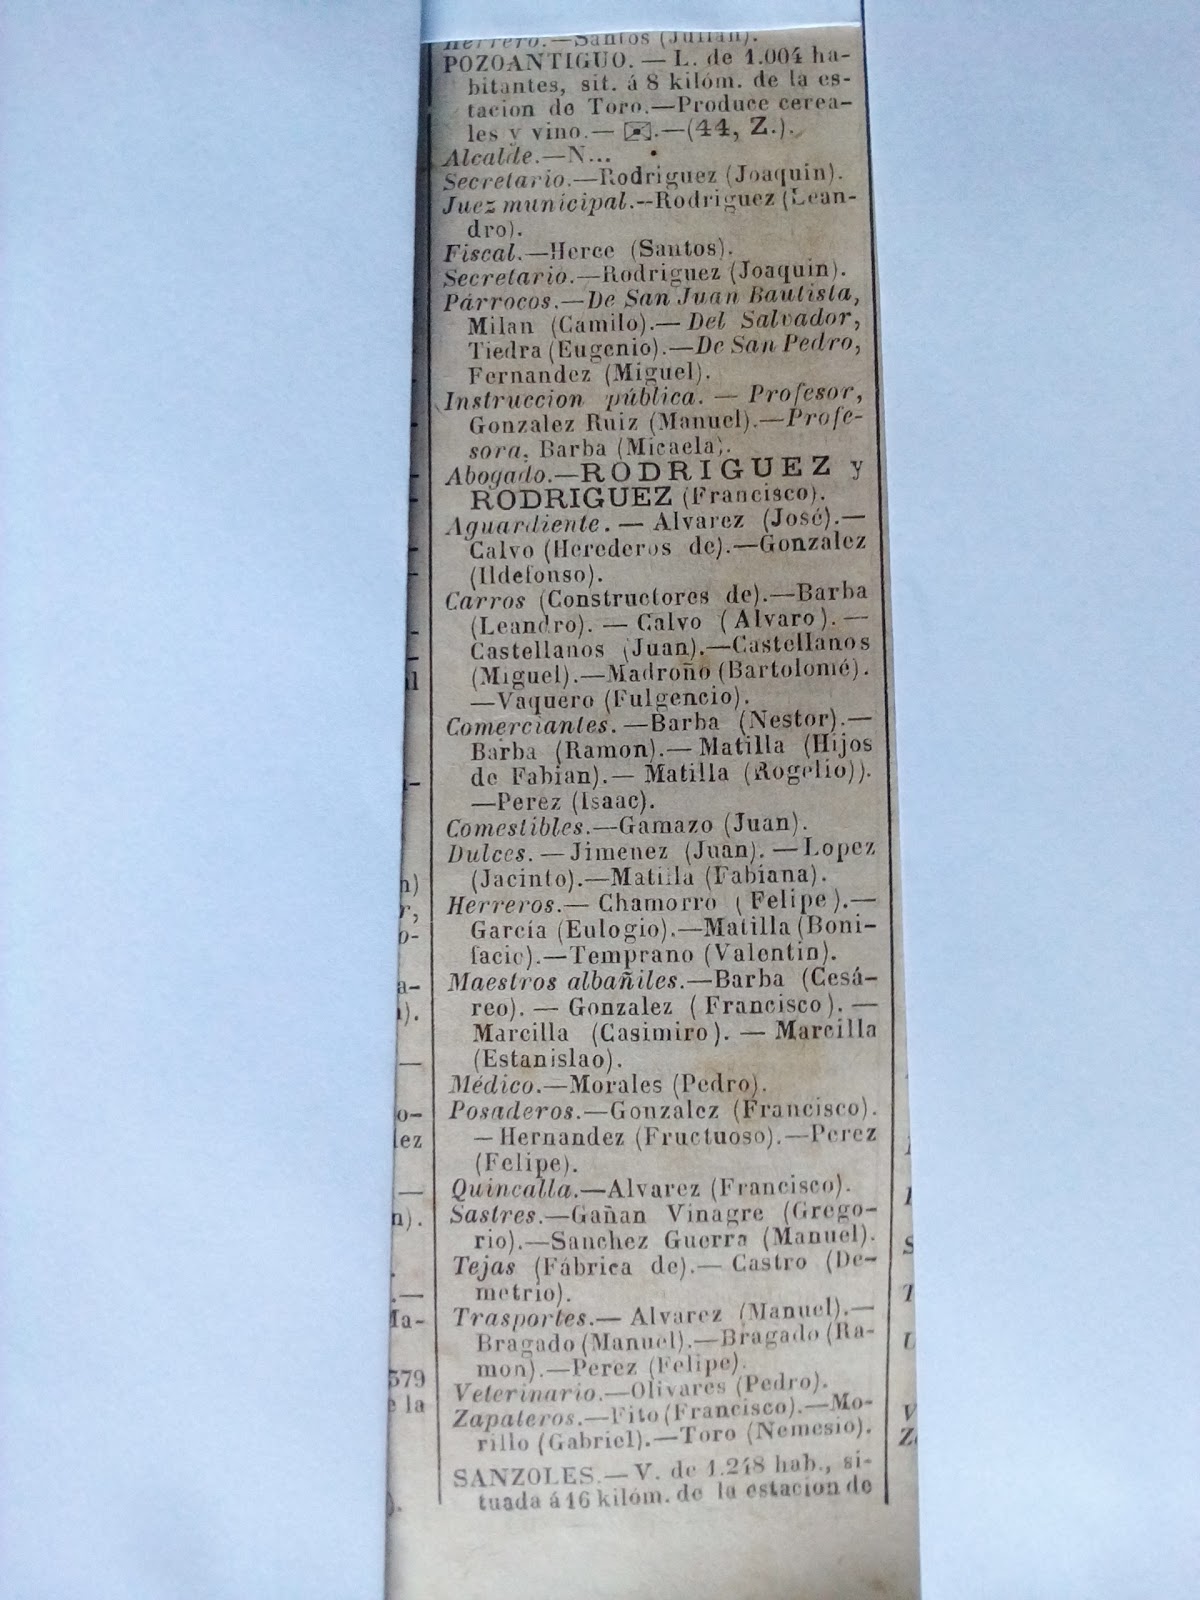 Herrero.—Santos (Julian).
POZOANTIGUO. — L. de 1.004 ha-
bitantes, sit. á 8 kilóm. de la es-
tacion de Toro.—Produce cerea-
les y vino.— ✉.—(44, Z.).
Alcalde.—N...
Secretario.—Rodriguez (Joaquin).
Juez municipal.--Rodriguez (Lean-
dro).
Fiscal.—Herce (Santos).
Secretario.—Rodriguez (Joaquin).
Párrocos.—De San Juan Bautista,
Milan (Camilo).— Del Salvador,
Tiedra (Eugenio).—De San Pedro,
Fernandez (Miguel).
Instruccion pública. — Profesor,
Gonzalez Ruiz (Manuel).—Profe-
sora, Barba (Micaela).
Abogado.—RODRIGUEZ y
RODRIGUEZ (Francisco).
Aguardiente. — Alvarez (José).—
Calvo (Herederos de).—Gonzalez
(Ildefonso).
Carros (Constructores de).—Barba
(Leandro). — Calvo (Alvaro). —
Castellanos (Juan).—Castellanos
(Miguel).—Madroño (Bartolomé).
—Vaquero (Fulgencio).
Comerciantes. —Barba (Nestor).—
Barba (Ramon).— Matilla (Hijos
de Fabian).— Matilla (Rogelio)).
—Perez (Isaac).
Comestibles.—Gamazo (Juan).
Dulces. — Jimenez (Juan). — Lopez
(Jacinto).—Matilla (Fabiana).
Herreros.— Chamorro (Felipe).—
García (Eulogio).—Matilla (Boni-
facio).—Temprano (Valentin).
Maestros albañiles.—Barba (Cesá-
reo). — Gonzalez (Francisco). —
Marcilla (Casimiro). — Marcilla
(Estanislao).
Médico.—Morales (Pedro).
Posaderos.—Gonzalez (Francisco).
—Hernandez (Fructuoso).—Perez
(Felipe).
Quincalla.—Alvarez (Francisco).
Sastres.—Gañan Vinagre (Grego-
rio).—Sanchez Guerra (Manuel).
Tejas (Fábrica de).— Castro (De-
metrio).
Trasportes.— Alvarez (Manuel).—
Bragado (Manuel).—Bragado (Ra-
mon).—Perez (Felipe).
Veterinario.—Olivares (Pedro).
Zapateros.—Fito (Francisco).—Mo-
rillo (Gabriel).—Toro (Nemesio).
SANZOLES.—V. de 1.248 hab., si-
tuada á 16 kilóm. de la estacion de